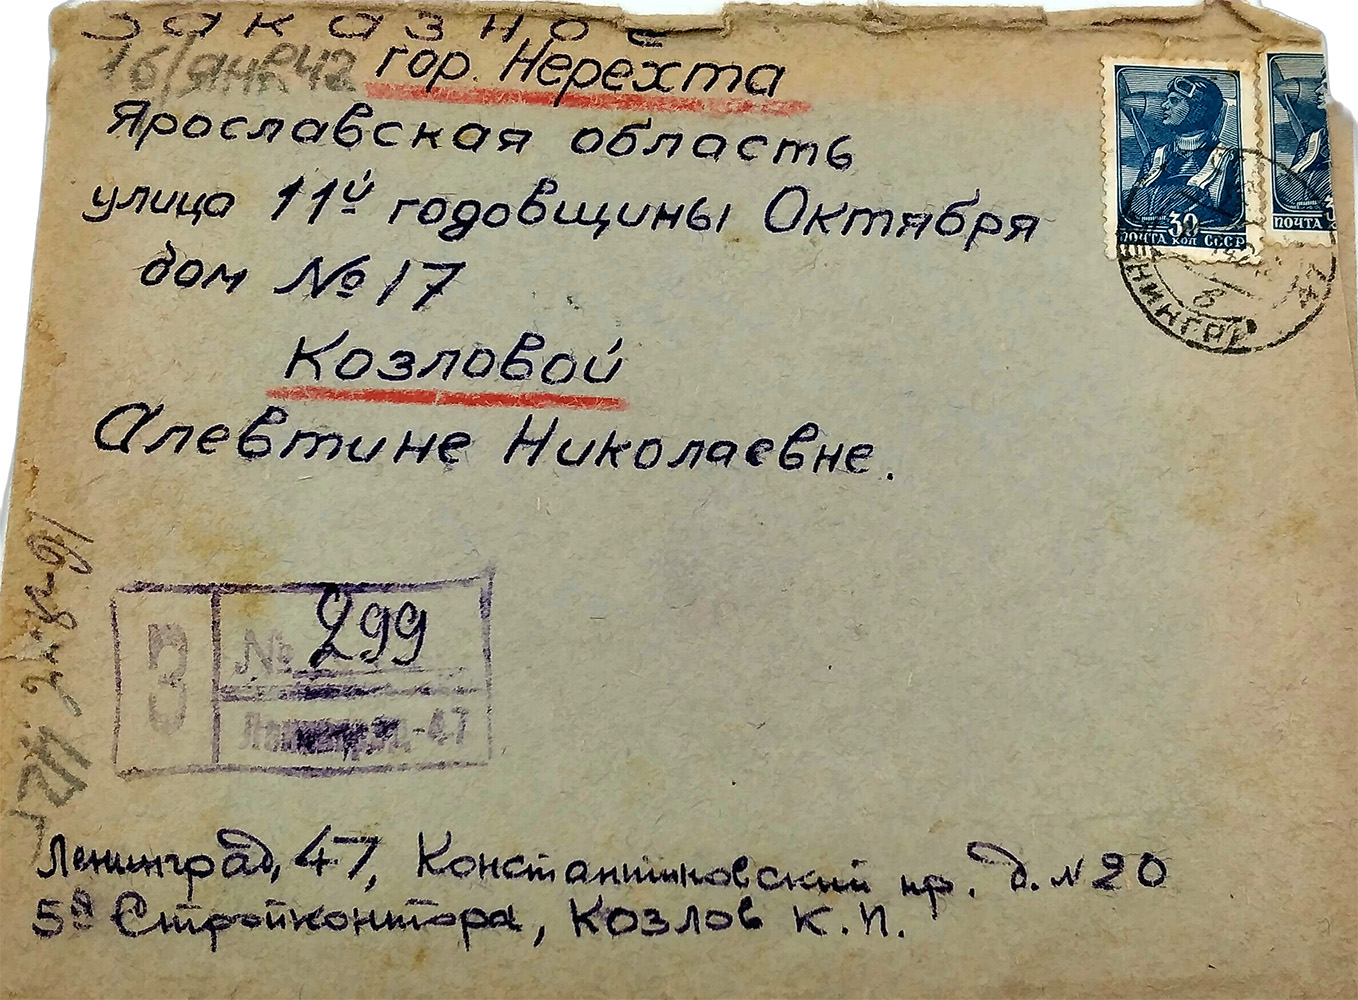 Заказное
16/янв 42 гор. Нерехта
Ярославская область
улица 11й годовщины Октября
дом № 17
Козловой
Алевтине Николаевне.
30
ПОЧТА коп СССР
ПОЧТА
НИНГРА
в
З
№ 299
Ленинград-47
Ленинград, 47, Константиновский пр. д. № 20
5я Стройконтора, Козлов К. П.